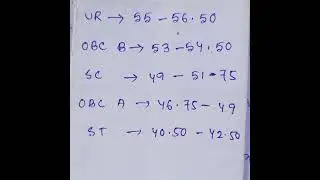 UR → 55 - 56.50
OBC B → 53 - 54.50
SC → 49 - 51.75
OBC A → 46.75 - 49
ST → 40.50 - 42.50